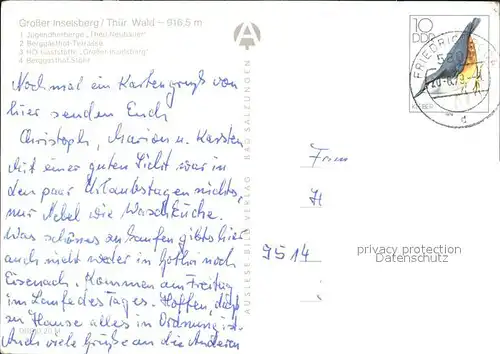 Großer Inselsberg / Thür. Wald — 916,5 m
1 Jugendherberge „Theo Neubauer“
2 Berggasthof-Terrasse
3 HO-Gaststätte „Großer Inselsberg“
4 Berggasthof Stöhr
Noch mal ein Kartengruß von
hier senden Euch
Christoph, Marion u. Karsten
Mit einer guten Sicht war in
den paar Urlaubstagen nichts,
nur Nebel wie Waschküche.
Was schönes zu kaufen gibts hier
auch nicht weder in Gotha noch
Eisenach. Kommen am Freitag
im Laufe des Tages. Hoffen, daß
zu Hause alles in Ordnung ist.
Auch viele Grüße an die Anderen
AUSLESE-BILD-VERLAG BAD SALZUNGEN
A
10
DDR
FRIEDRICH
580
20-6.79
d
Frau
H
9514
privacy protection
Datenschutz